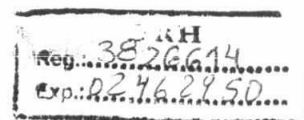 RH
Reg.: 3826614
Exp.: 02.462950